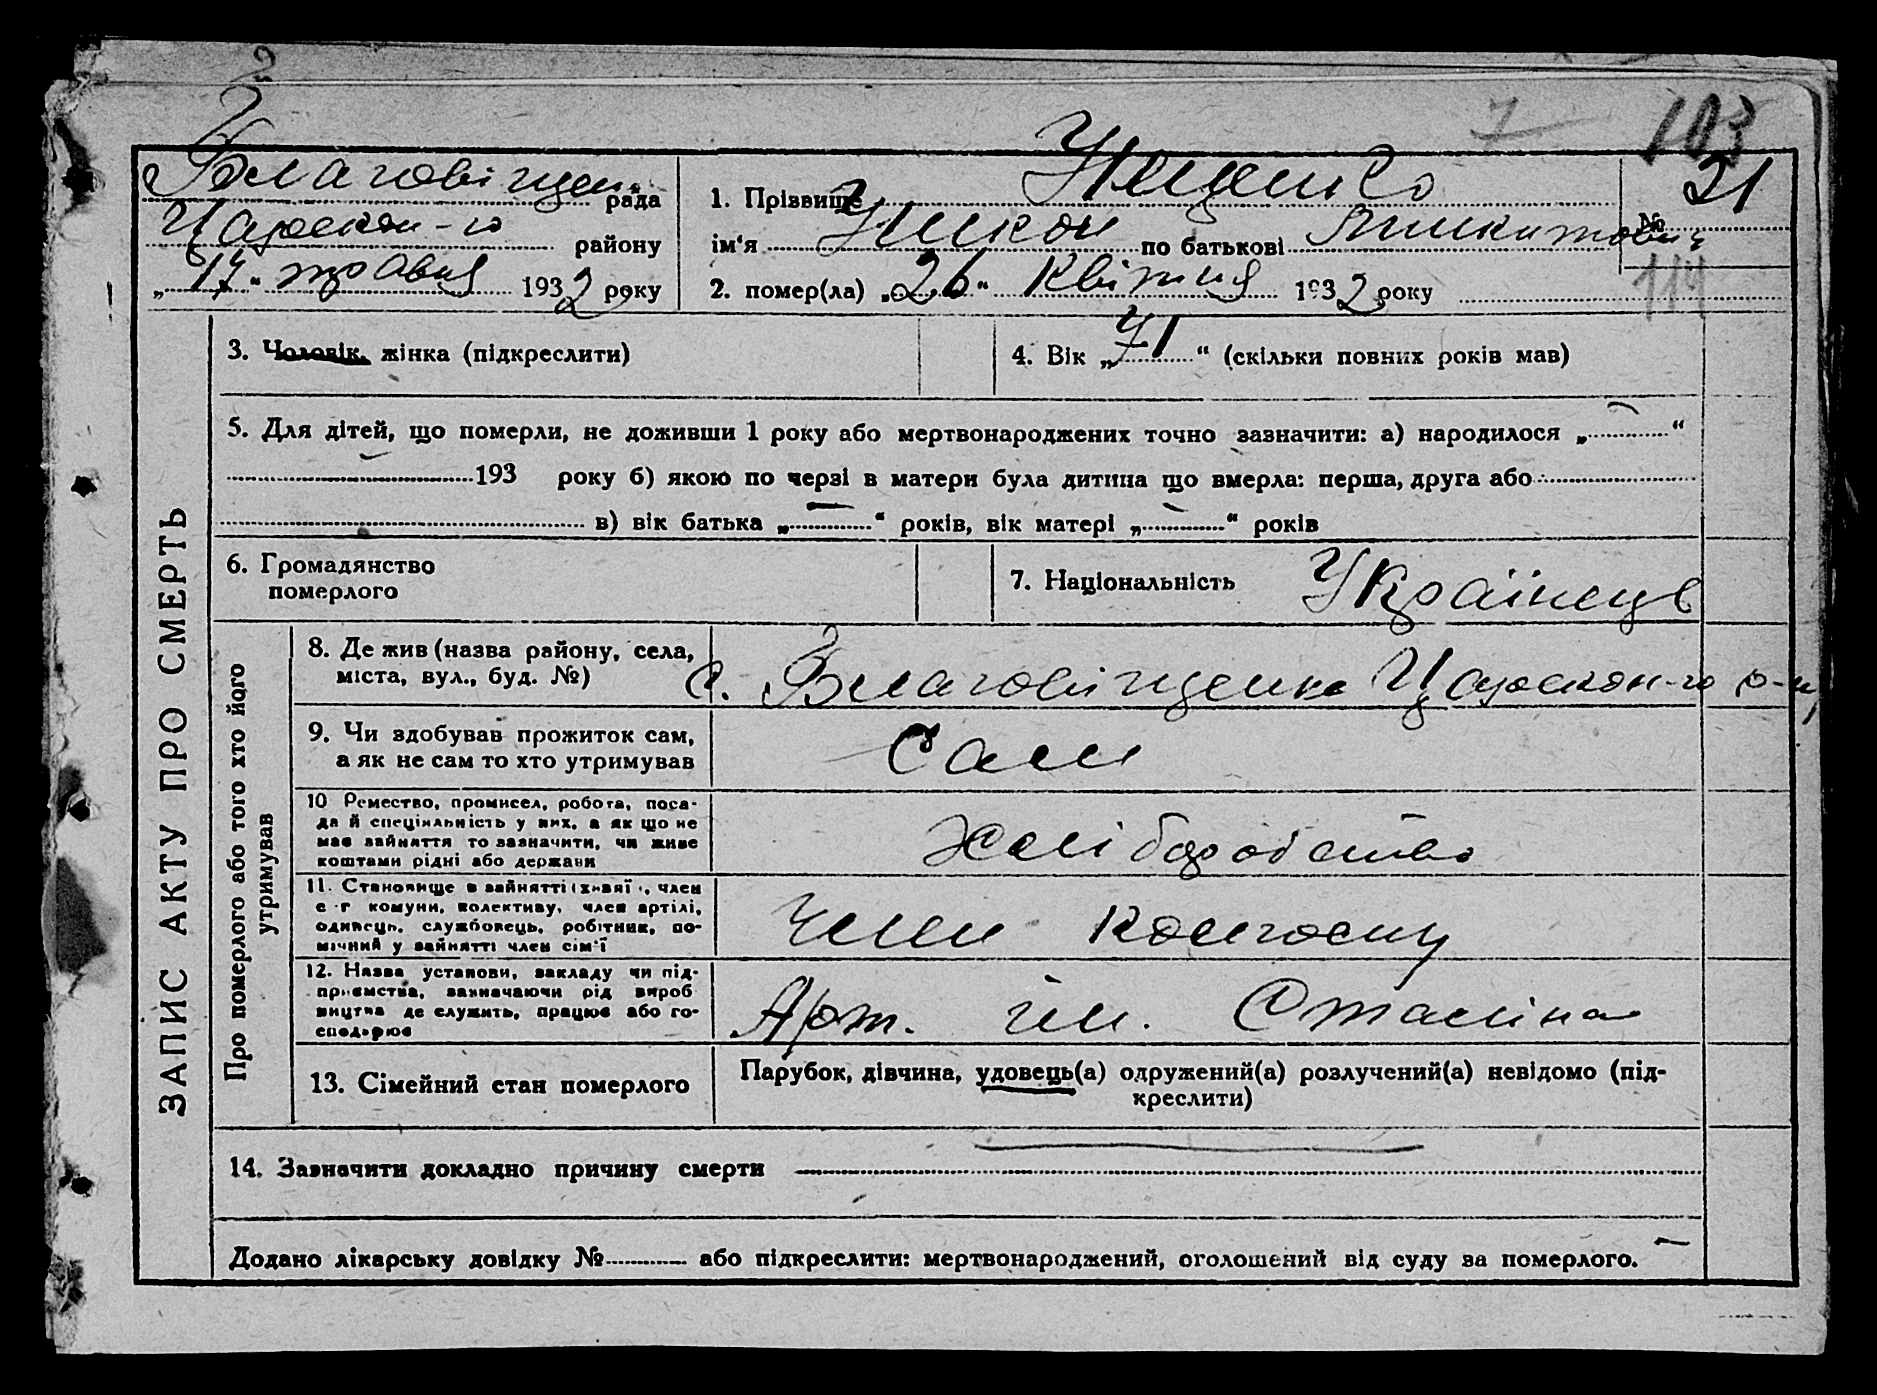 7 103
Благовіщен. рада
Царекон-го району
„17“ травня 1932 року
1. Прізвище Ященко
ім'я Никон по батькові Микитович
2. помер(ла) „26“ Квітня 1932 року
№ 21
114
ЗАПИС АКТУ ПРО СМЕРТЬ
3. Чоловік, жінка (підкреслити)
4. Вік „71“ (скільки повних років мав)
5. Для дітей, що померли, не доживши 1 року або мертвонароджених точно зазначити: а) народилося „ “
193 року б) якою по черзі в матери була дитина що вмерла: перша, друга або
в) вік батька „ “ років, вік матері „ “ років
6. Громадянство
померлого
7. Національність Українець
Про померлого або того хто його
утримував
8. Де жив (назва району, села,
міста, вул., буд. №)
с. Благовіщенка Царекон-го р-н
9. Чи здобував прожиток сам,
а як не сам то хто утримував
Сам
10 Ремество, промисел, робота, поса-
да й спеціяльність у них, а як що не
має зайняття то зазначити, чи живе
коштами рідні або держави
Хліборобство
11. Становище в зайнятті член
комуни, колективу, член артілі,
одинець, службовець, робітник, по-
мічний у зайнятті член сім'ї
Член колгоспу
12. Назва установи, закладу чи під-
приємства, зазначаючи рід вироб
ництва де служить, працює або го-
сподарює
Арт. ім. Сталіна
13. Сімейний стан померлого
Парубок, дівчина, удовець(а) одружений(а) розлучений(а) невідомо (під-
креслити)
14. Зазначити докладно причину смерти
Додано лікарську довідку № або підкреслити: мертвонароджений, оголошений від суду за померлого.